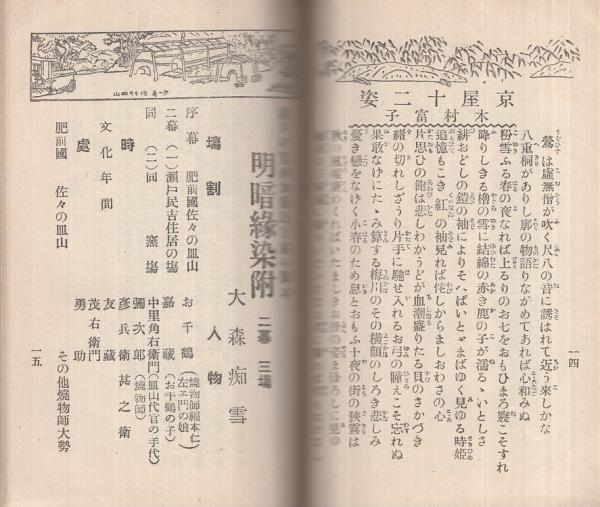 京屋十二姿
木村富子
鶯は虛無僧が吹く尺八の音に誘はれて近う來しかな
八重桐がありし廓の物語りながめてあれば心和みぬ
粉雪ふる春の夜なれば上るりのお七をおもひまろ寢こそすれ
降りしきる櫓の雪に結綿の赤き鹿の子が濡るゝいとしさ
緋おどしの鎧の袖によりそへばいとゞまばゆく見ゆる時姬
追憶もこき紅の袖見れば侘しからましおわさの心
片思ひの鮑は悲しわかうどが血潮盛りたる貝のさかづき
緖の切れしざうり片手に馳せ入れるお弓の瞳えこそ忘れぬ
果敢なけにたゝみ算する梅川のその橫顏のしろき悲しみ
憂き戀をなけく小春のため息とおもふ十夜の街の狹霧は
一四
明暗緣染附
二幕
三場
大森痴雪
場割
序幕 肥前國佐々の皿山
二幕 (一)瀨戶民吉住居の場
同 (二)同 窯場
時
文化年間
處
肥前國 佐々の皿山
人物
お千鶴(燒物師福本仁左ヱ門の娘)
嘉藏(お千鶴の子)
中里角右衞門(皿山代官の手代)
彌次郎(燒物師)
彥兵衞
甚之衞
友藏
茂右衞門
勇助
その他燒物師大勢
一五